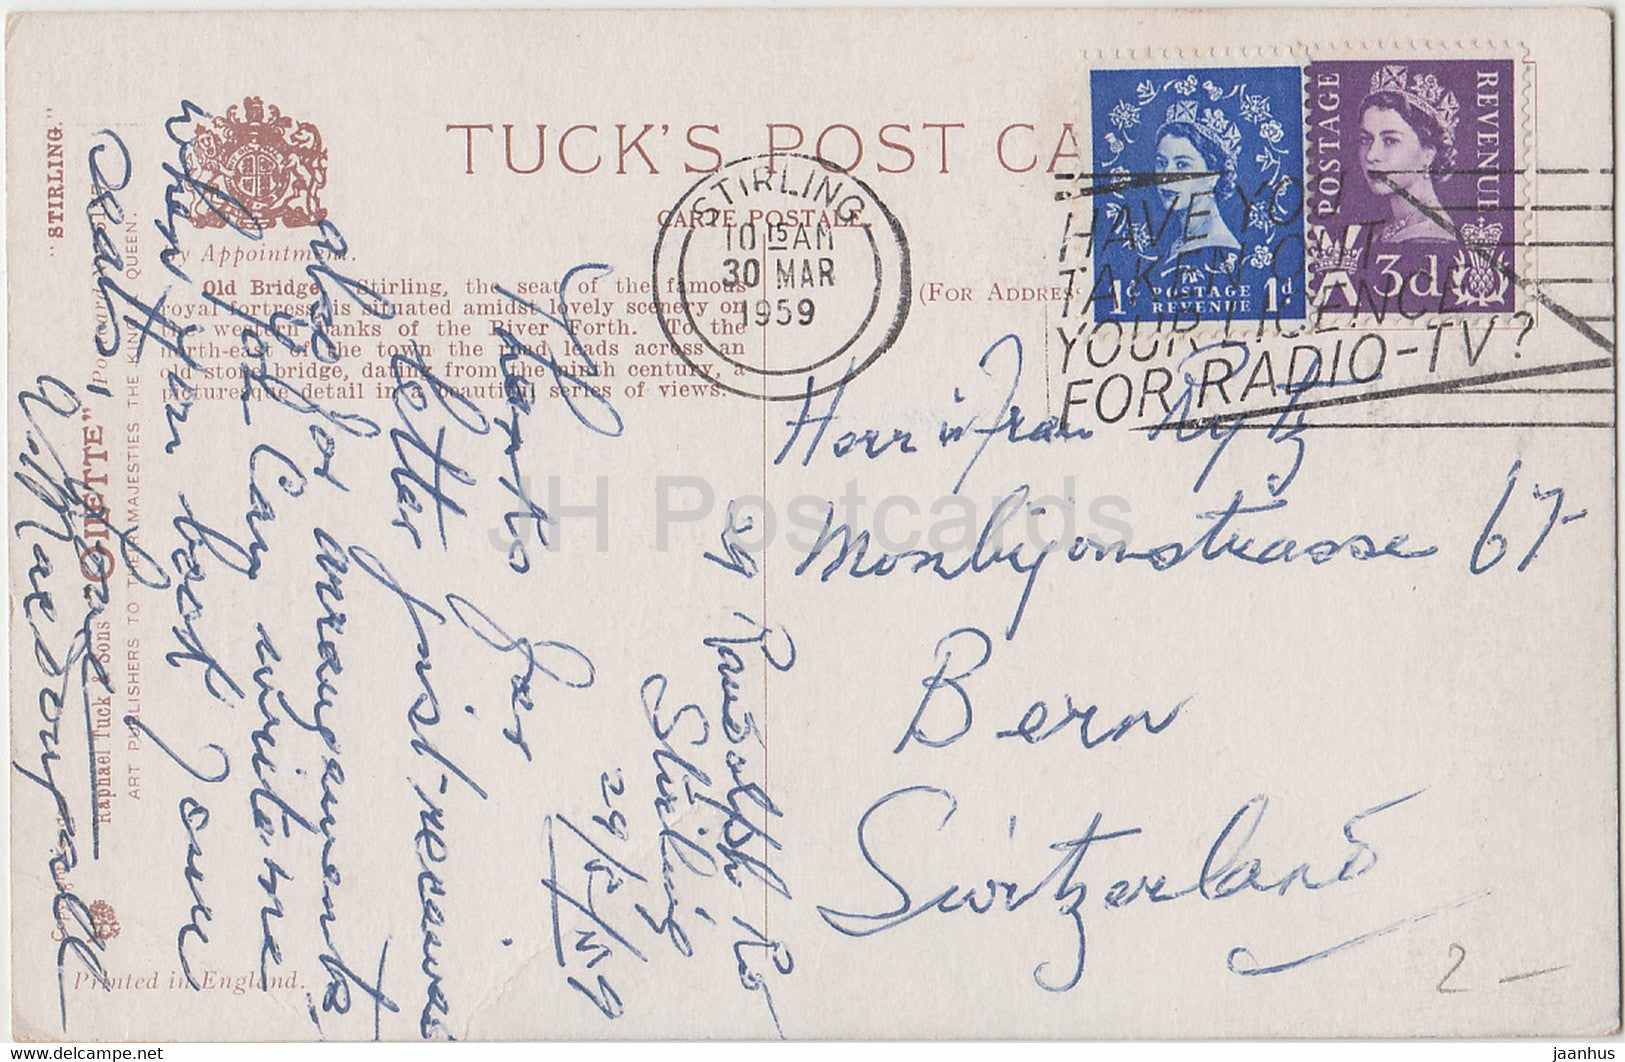 TUCK'S POST CA
CARTE POSTALE.
(FOR ADDRESS
"STIRLING."
By Appointment.
Old Bridge, Stirling, the seat of the famous
royal fortress, is situated amidst lovely scenery on
the western banks of the River Forth. To the
north-east of the town the road leads across an
old stone bridge, dating from the ninth century, a
picturesque detail in a beautiful series of views.
Raphael Tuck & Sons "OILETTE"
ART PUBLISHERS TO THEIR MAJESTIES THE KING QUEEN.
Printed in England.
STIRLING
10 15 AM
30 MAR
1959
HAVE YOU
TAKEN OUT
YOUR LICENCE
FOR RADIO-TV?
1d POSTAGE REVENUE 1d.
POSTAGE REVENUE
3d
29 Randolph Rd
Stirling
29/3/59
Many thanks for
letter just received
for arrangements
Can write me
when back
Yours
MacDougall
Herr u Frau Rytz
Monbijoustrasse 67
Bern
Switzerland
2 -
JH Postcards
jaanhus delcampe.net